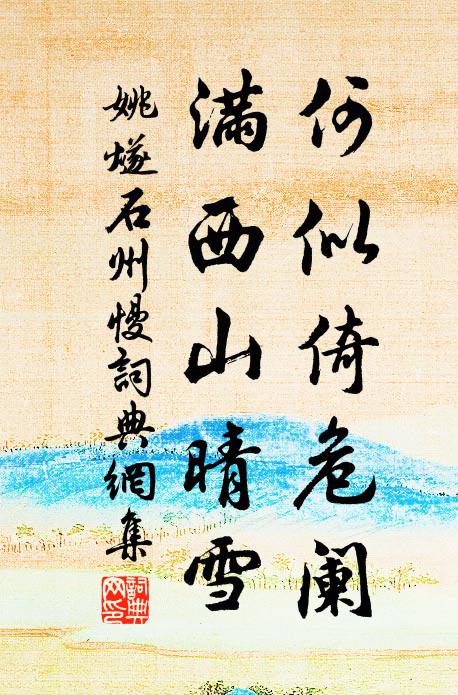 何似倚危阑
满西山晴雪
姚燧石州慢詞典網集
詞典网印